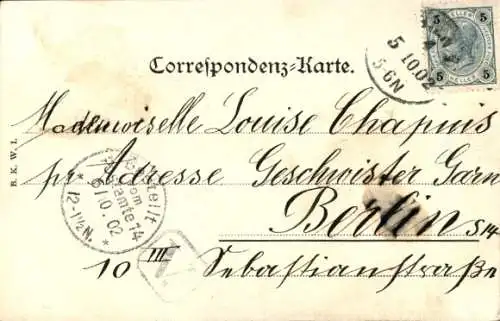 5
5
HELLER
5
5
5 10.02
5-6N
Correspondenz=Karte.
Mademoiselle Louise Chapuis
pr. Adresse Geschwister Garn
Berlin S14
10 III Sebastianstraße
B. K. W. I.
Bestellt
vom
Postamte 14
6/10.02
12-1½N.
*